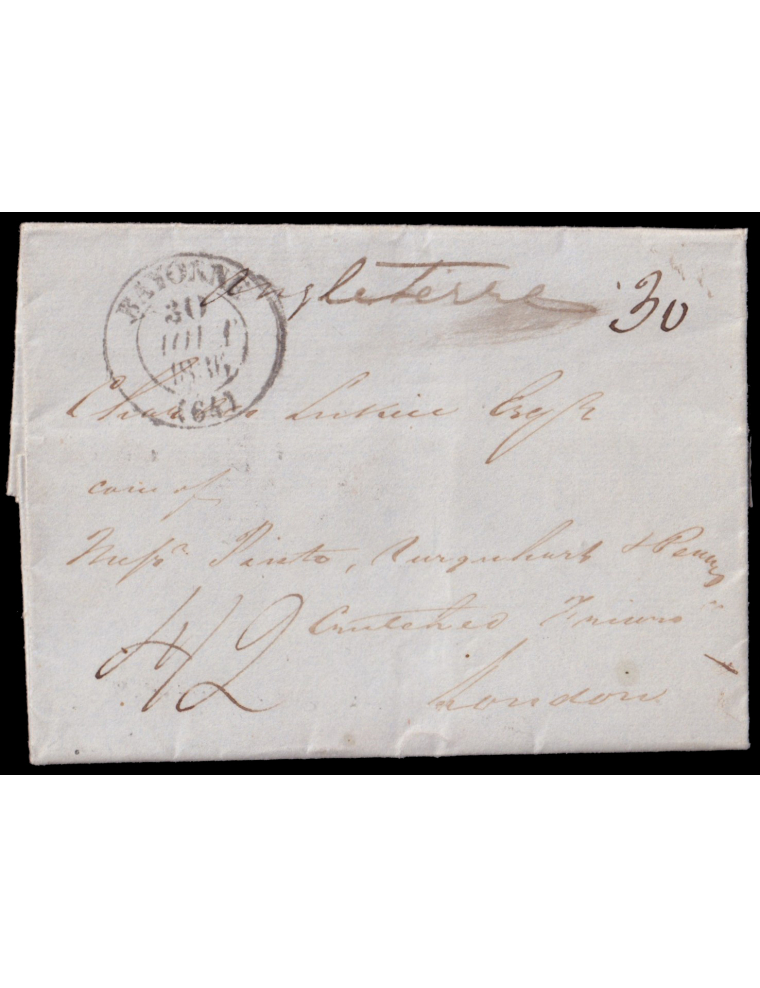 BAYONNE
30
(64)
Angleterre
30
Charles Esqr
care of
Messrs Pinto, Urquhart &
Crutched Friars
London
4/2